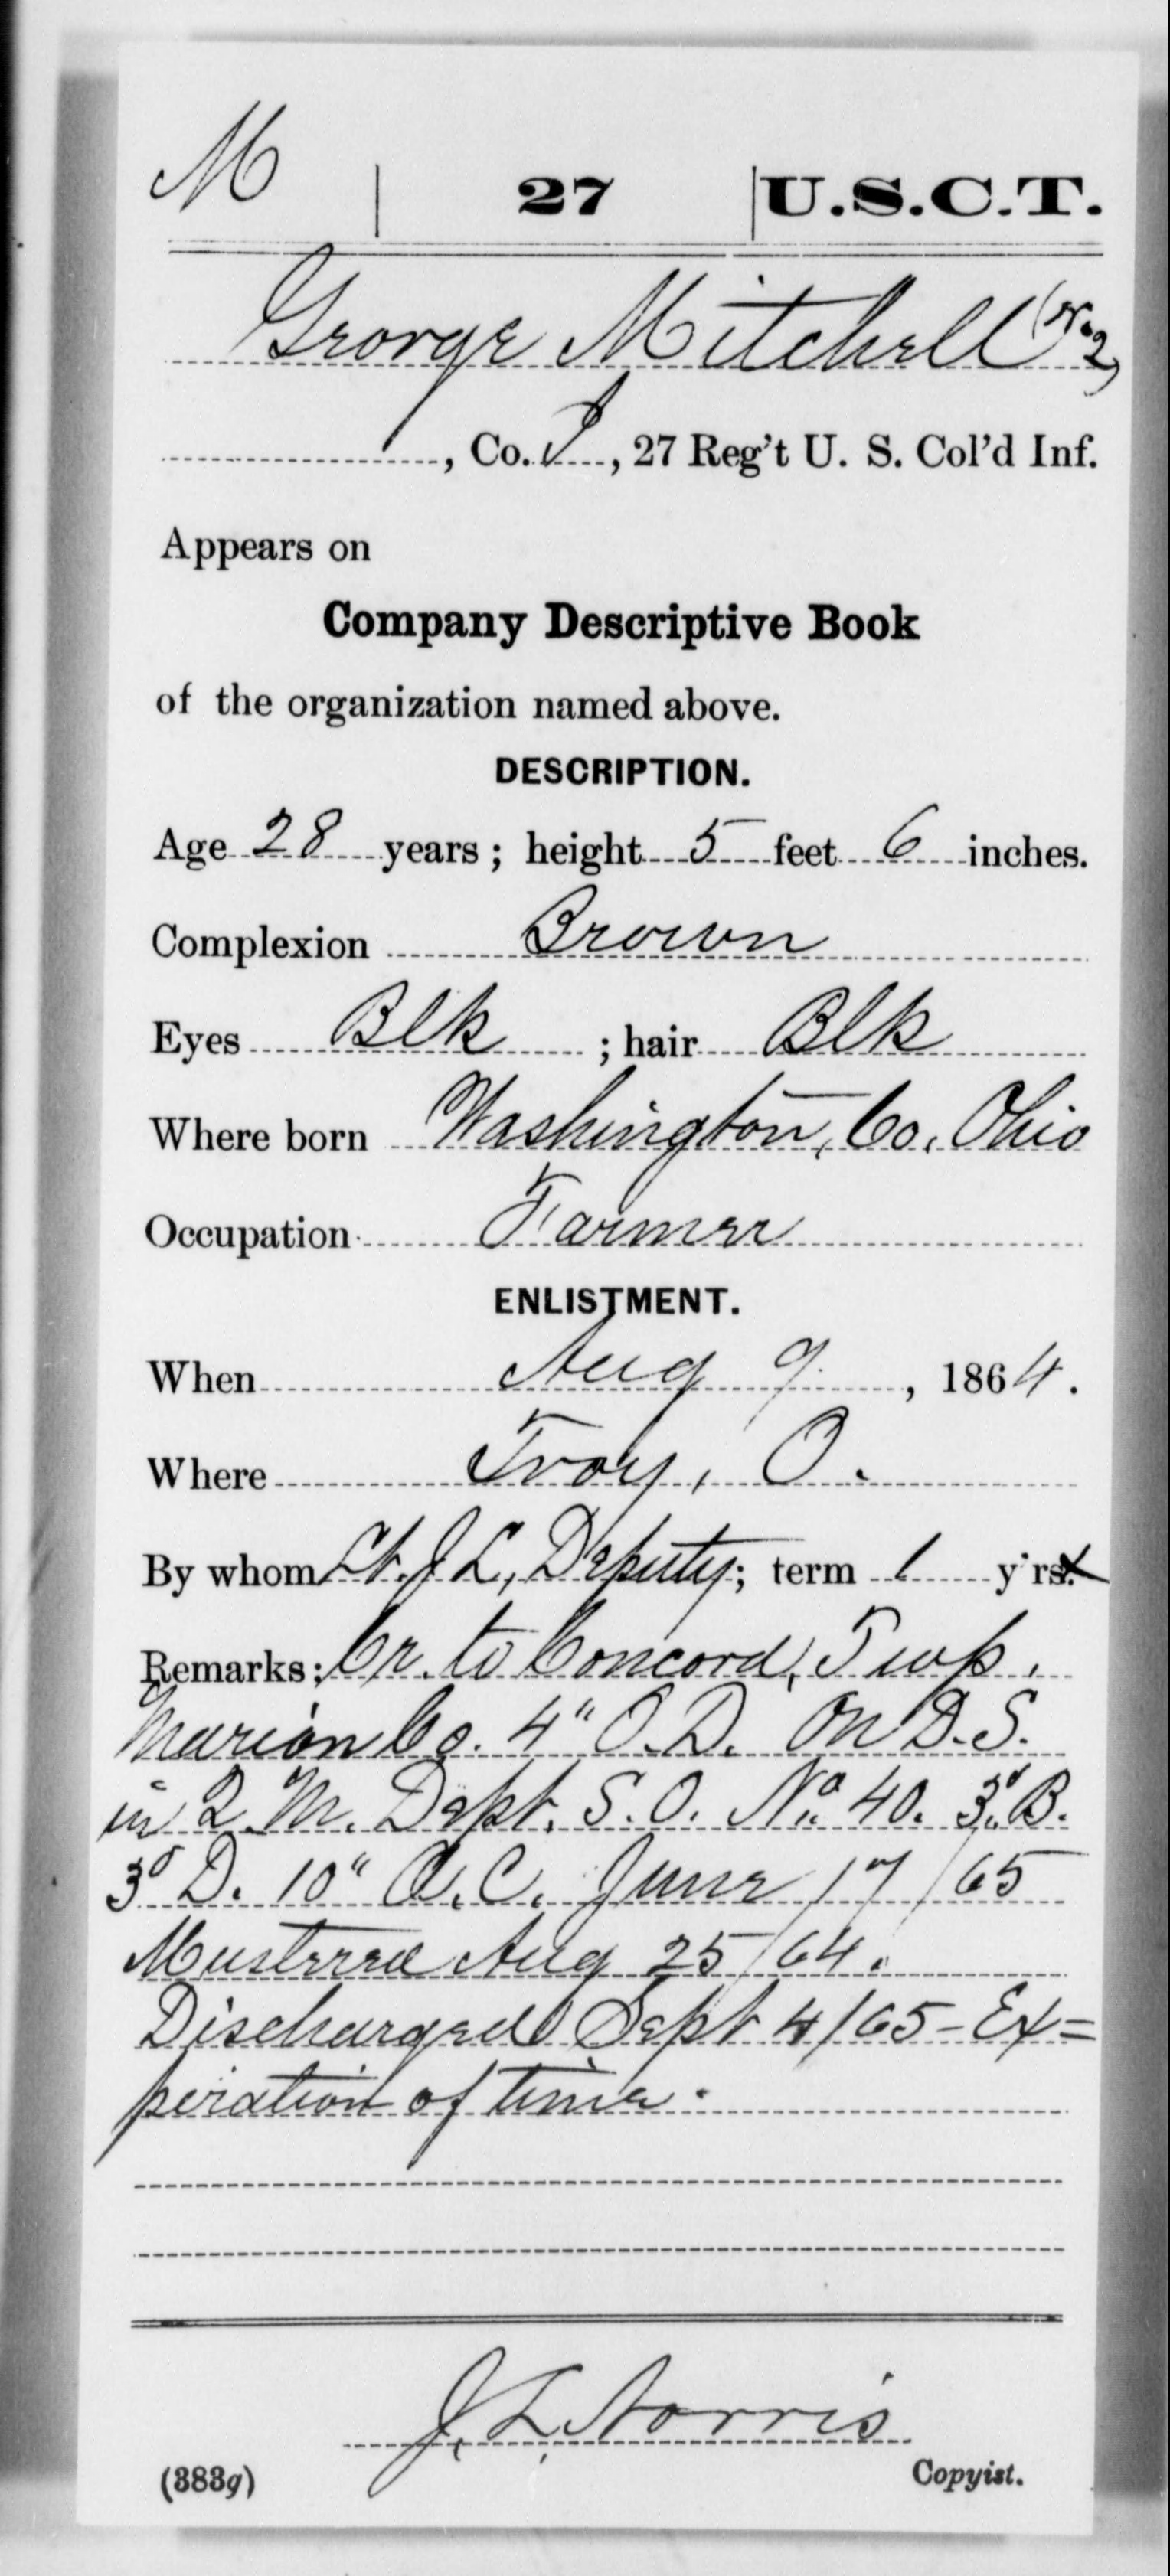 M | 27 | U.S.C.T.
George Mitchell (No 2)
, Co. I, 27 Reg't U. S. Col'd Inf.
Appears on
Company Descriptive Book
of the organization named above.
DESCRIPTION.
Age 28 years; height 5 feet 6 inches.
Complexion Brown
Eyes Blk ; hair Blk
Where born Washington, Co. Ohio
Occupation Farmer
ENLISTMENT.
When Aug 9, 1864.
Where Troy, O.
By whom Lt. J L, Deputy; term 1 y'rs.
Remarks: Cr. to Concord, Twp.
Marion Co. 4" O.D. On D.S.
in Q.M. Dept. S.O. No. 40. 3d B.
3d D. 10" A.C. June 17/65
Mustered Aug 25/64.
Discharged Sept 4/65 - Ex=
piration of time.
J. L. Norris
(383g) Copyist.